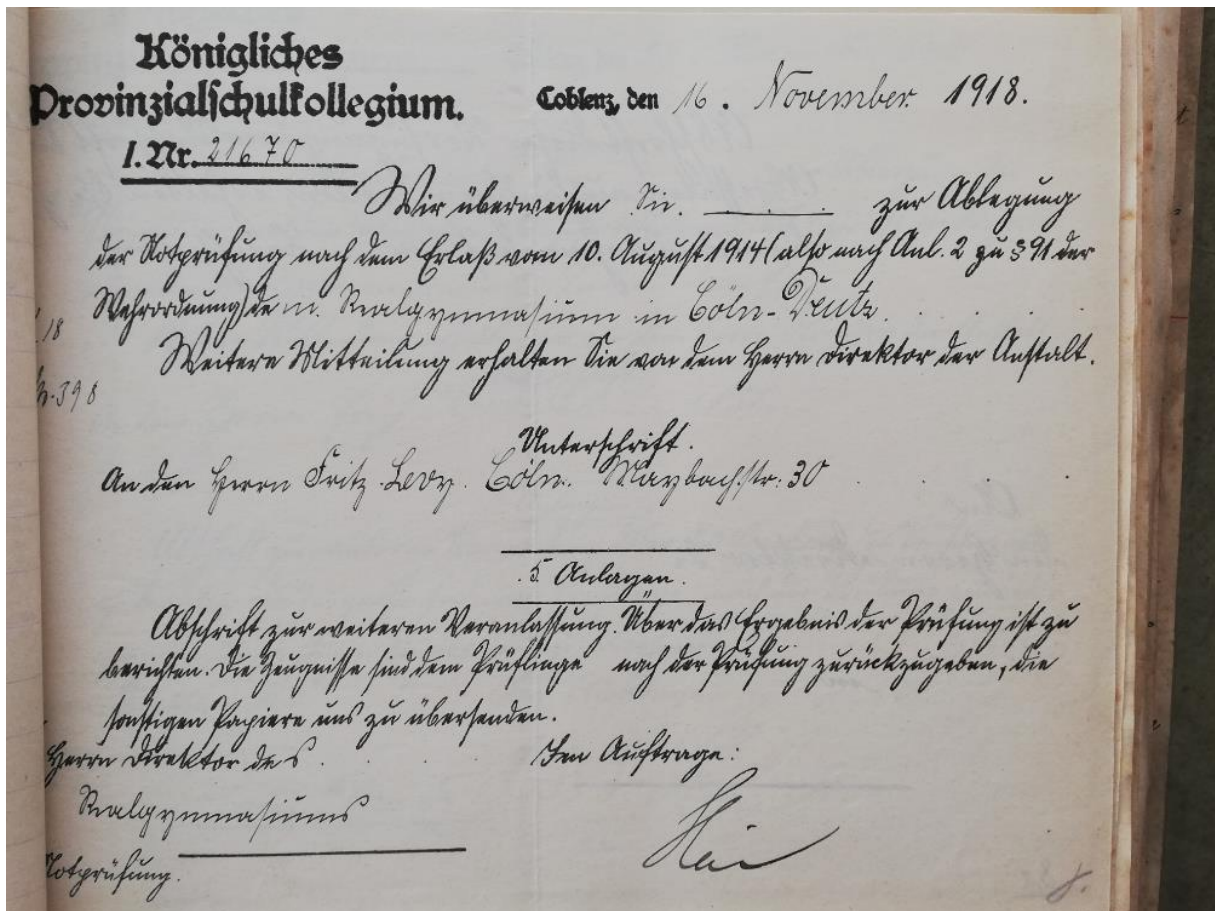 Königliches
Provinzialschulkollegium.
Coblenz, den 16. November 1918.
I. Nr. 21670
Wir überweisen Sie. zur Ablegung
der Notprüfung nach dem Erlaß vom 10. August 1914 (also nach Anl. 2 zu § 91 der
Wehrordnung) dem. Realgymnasium in Cöln-Deutz.
18
Weitere Mitteilung erhalten Sie von dem Herrn Direktor der Anstalt.
398
Unterschrift.
An den Herrn Fritz Levy. Cöln. Maybachstr. 30
5 Anlagen.
Abschrift zur weiteren Veranlassung. Über das Ergebnis der Prüfung ist zu
berichten. Die Zeugnisse sind dem Prüflinge nach der Prüfung zurückzugeben, die
sonstigen Papiere uns zu übersenden.
Herrn Direktor des
Im Auftrage:
Realgymnasiums
Notprüfung.